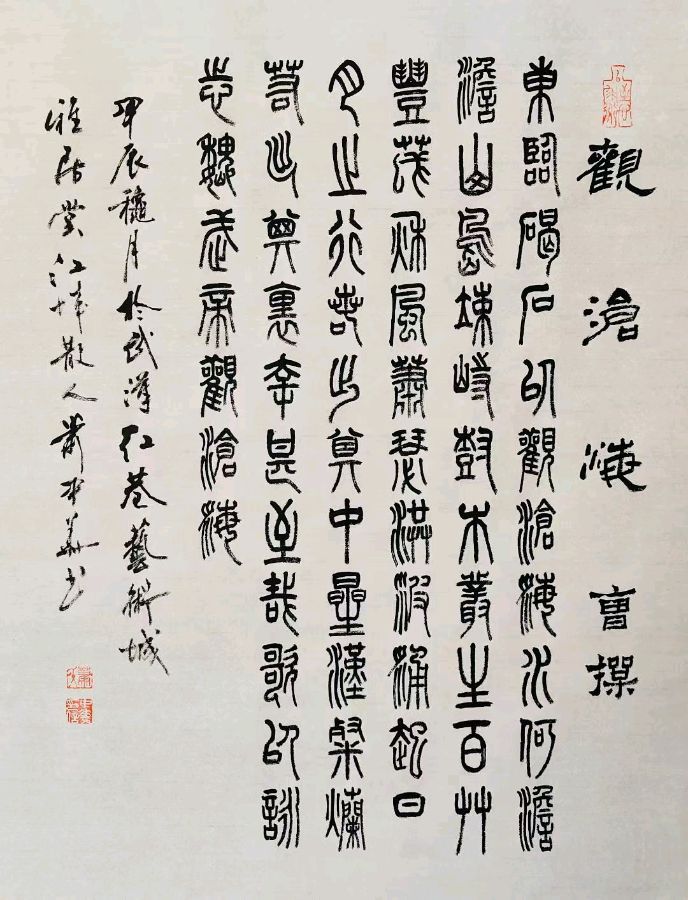 觀滄海 曹操
東臨碣石以觀滄海水何澹
澹山島竦峙樹木叢生百艸
豐茂秋風蕭瑟洪波涌起日
月之行若出其中星漢粲爛
若出其裏幸甚至哉歌以詠
志魏武帝觀滄海
甲辰穐月於武漢红巷藝術城
雅居堂江城散人 書